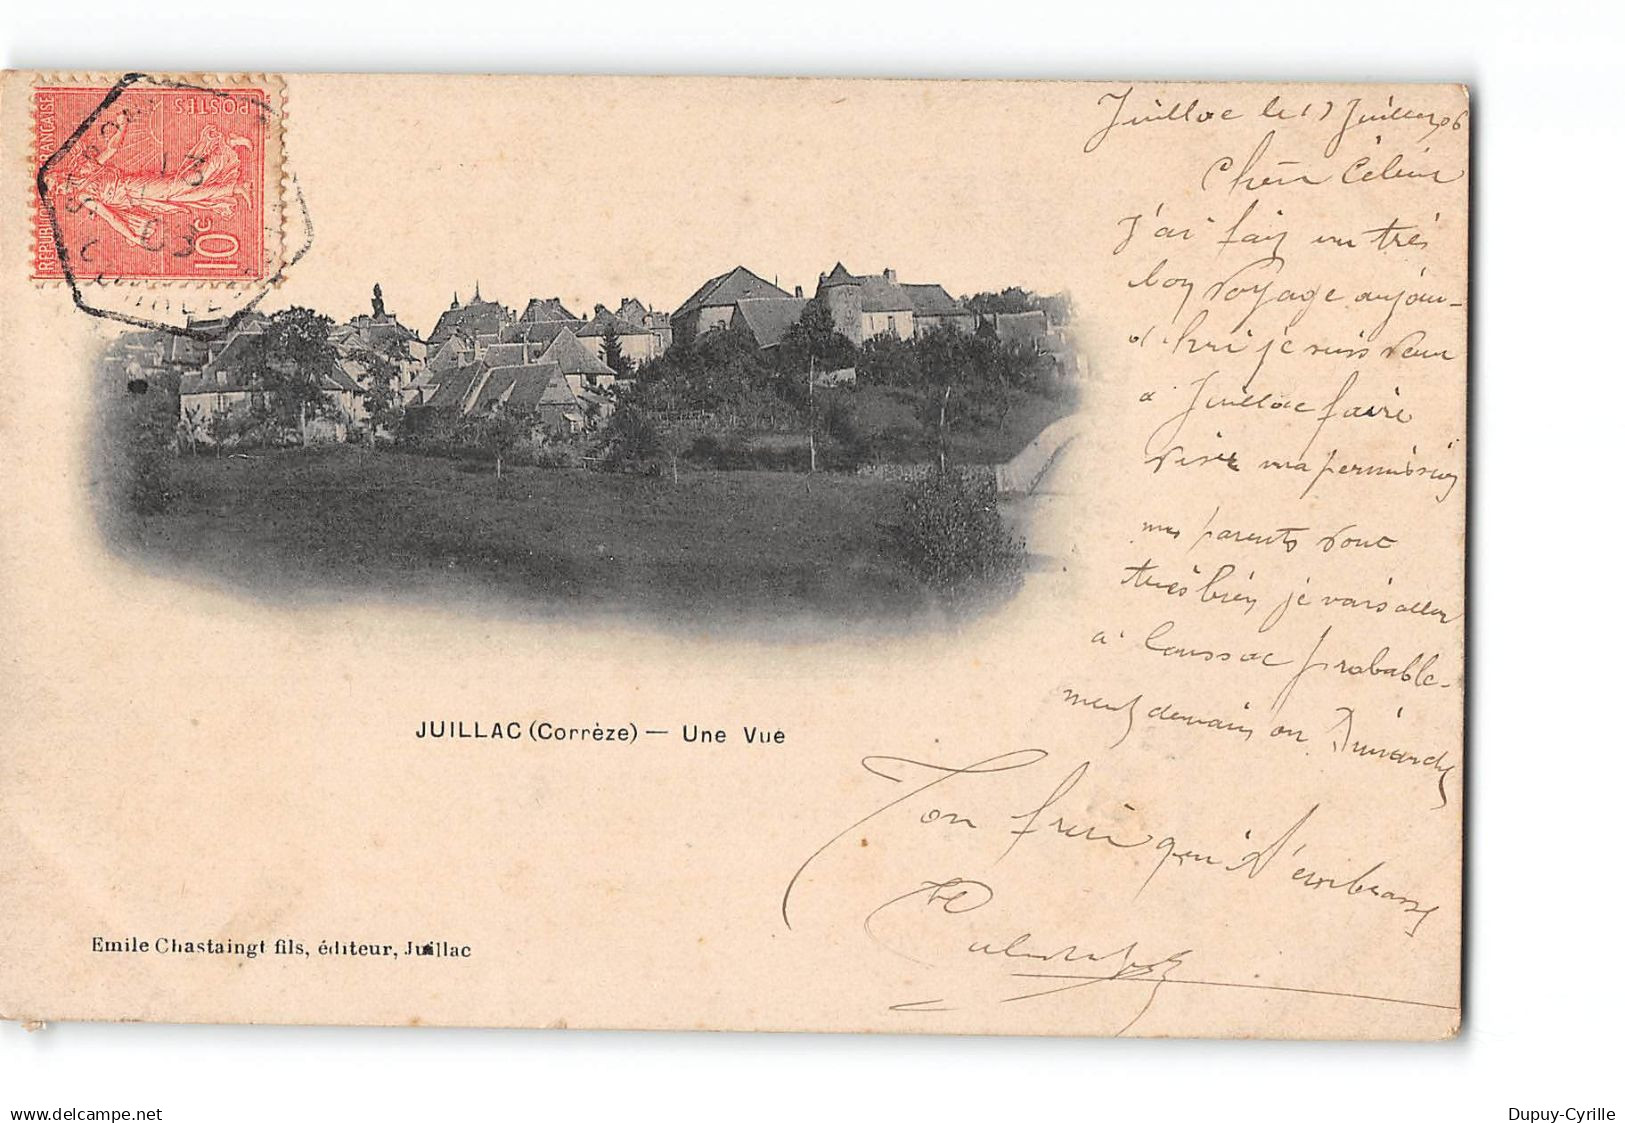 RÉPUBLIQUE FRANÇAISE
POSTES
10c
13
Juillac le 13 Juillet 06
Chère
J'ai fait un très
bon voyage aujour-
d'hui je suis venu
a Juillac faire
viser ma permission
mes parents vont
très bien je vais aller
a probable-
ment demain ou Dimanche
Ton frère qui t'embrasse
JUILLAC (Corrèze) — Une Vue
Emile Chastaingt fils, éditeur, Juillac
www.delcampe.net
Dupuy-Cyrille